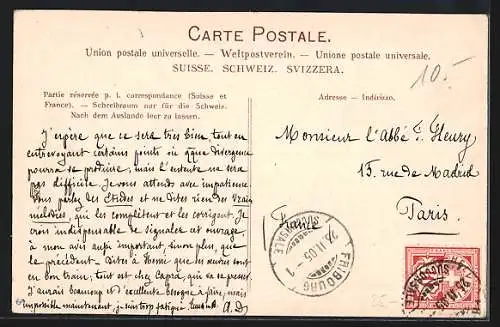 CARTE POSTALE.
Union postale universelle. — Weltpostverein. — Unione postale universale.
SUISSE. SCHWEIZ. SVIZZERA.
10.-
Partie réservée p. l. correspondance (Suisse et
France). — Schreibraum nur für die Schweiz.
Nach dem Auslande leer zu lassen.
Adresse — Indirizzo.
J'espère que ce sera très bien tout en
entrevoyant certains points où divergence
pourra se produire, mais l'entente ne sera
pas difficile. Je vous attends avec impatience.
Vous parlez des Etudes et ne dites rien des Vraies
mélodies, qui les complètent et les corrigent. Je
crois indispensable de signaler cet ouvrage,
à mon avis aussi important, sinon plus, que
le précédent. Dites à que les œuvres sont
en bon train; tout est chez Capra, qui va se presser.
J'aurais beaucoup et d'excellente besogne à faire, mais
impossible maintenant, je suis trop fatigué. A. D.
Monsieur l'Abbé Fleury
15, rue de Madrid
Paris.
(France)
FRIBOURG
SUCCURSALE
24.II.05 - 1
25.-